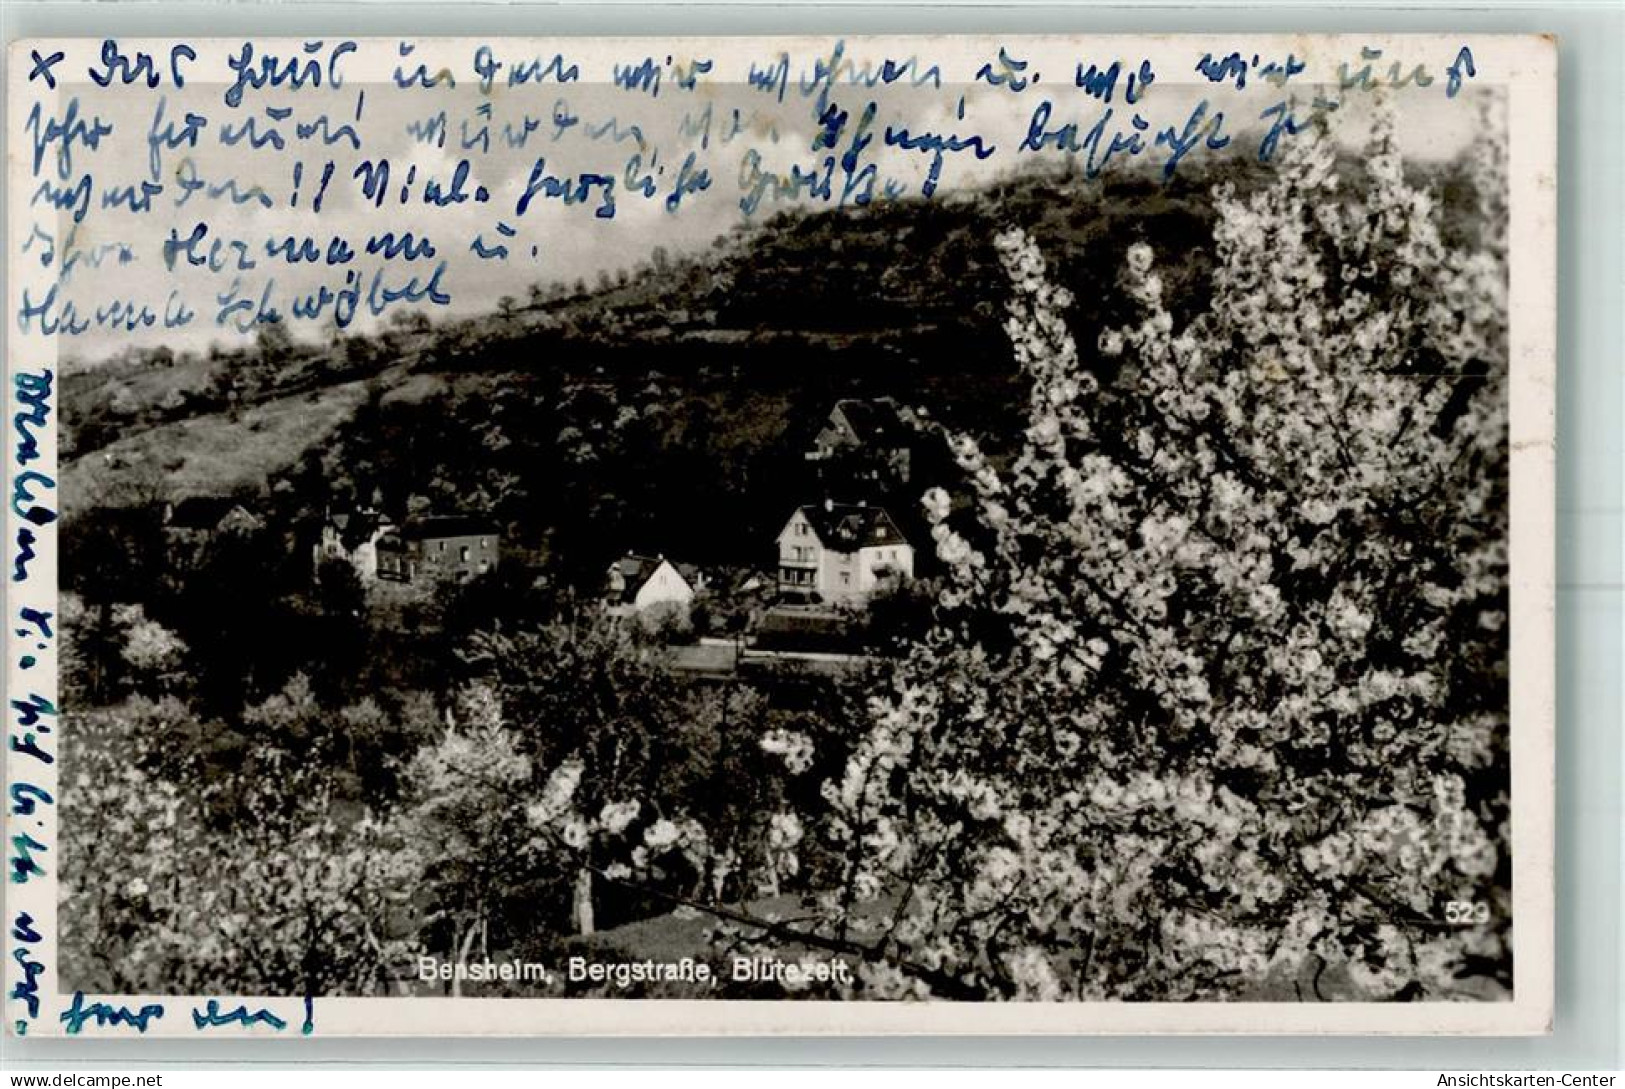 x Das Haus, in dem wir wohnen, u. wo wir uns
sehr freuen würden, von Ihnen besucht zu
werden!! Viele herzliche Grüße!
Ihre Hermann u.
Hanna Schwöbel
Melden Sie sich bitte vor-
her an!
529
Bensheim, Bergstraße, Blütezeit.
Ansichtskarten-Center